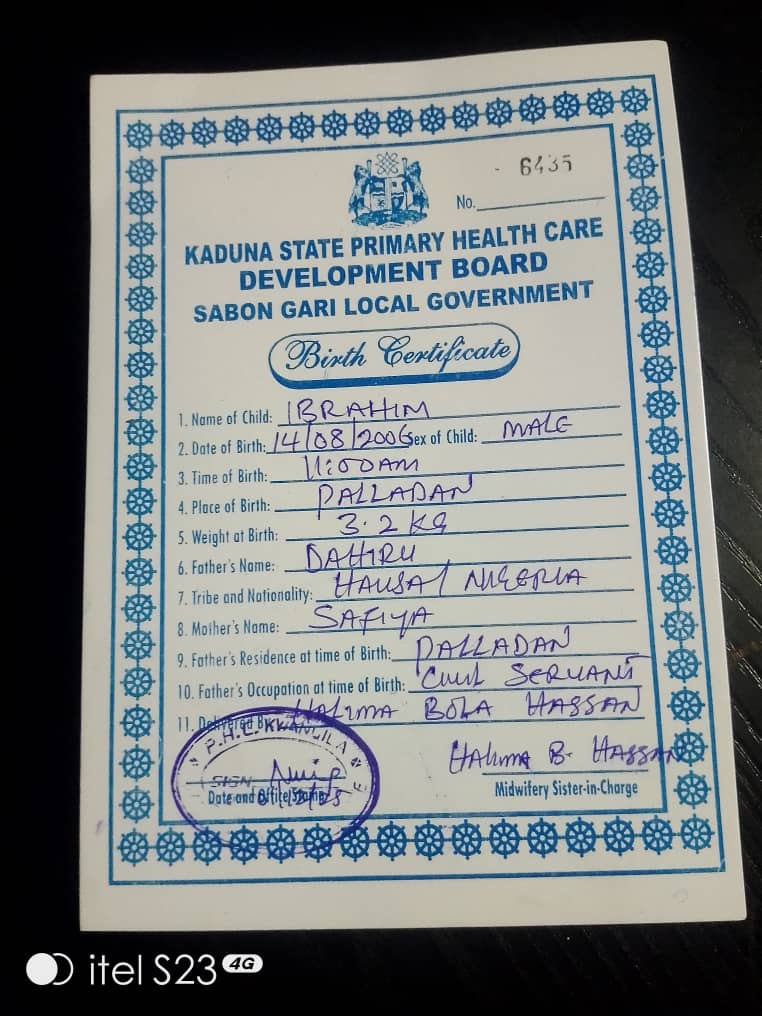 6435
No.
KADUNA STATE PRIMARY HEALTH CARE
DEVELOPMENT BOARD
SABON GARI LOCAL GOVERNMENT
Birth Certificate
1. Name of Child: IBRAHIM
2. Date of Birth: 14/08/2006 Sex of Child: MALE
3. Time of Birth: 11:00AM
4. Place of Birth: PALLADAN
5. Weight at Birth: 3.2KG
6. Father's Name: DAHIRU
7. Tribe and Nationality: HAUSA/ NIGERIA
8. Mother's Name: SAFIYA
9. Father's Residence at time of Birth: PALLADAN
10. Father's Occupation at time of Birth: Civil SERVANT
11. Delivered By HALIMA BOLA HASSAN
P.H.C. KWANGILA
SIGN
Date and Office Stamp
HALIMA B. HASSAN
Midwifery Sister-in-Charge
itel S23 4G